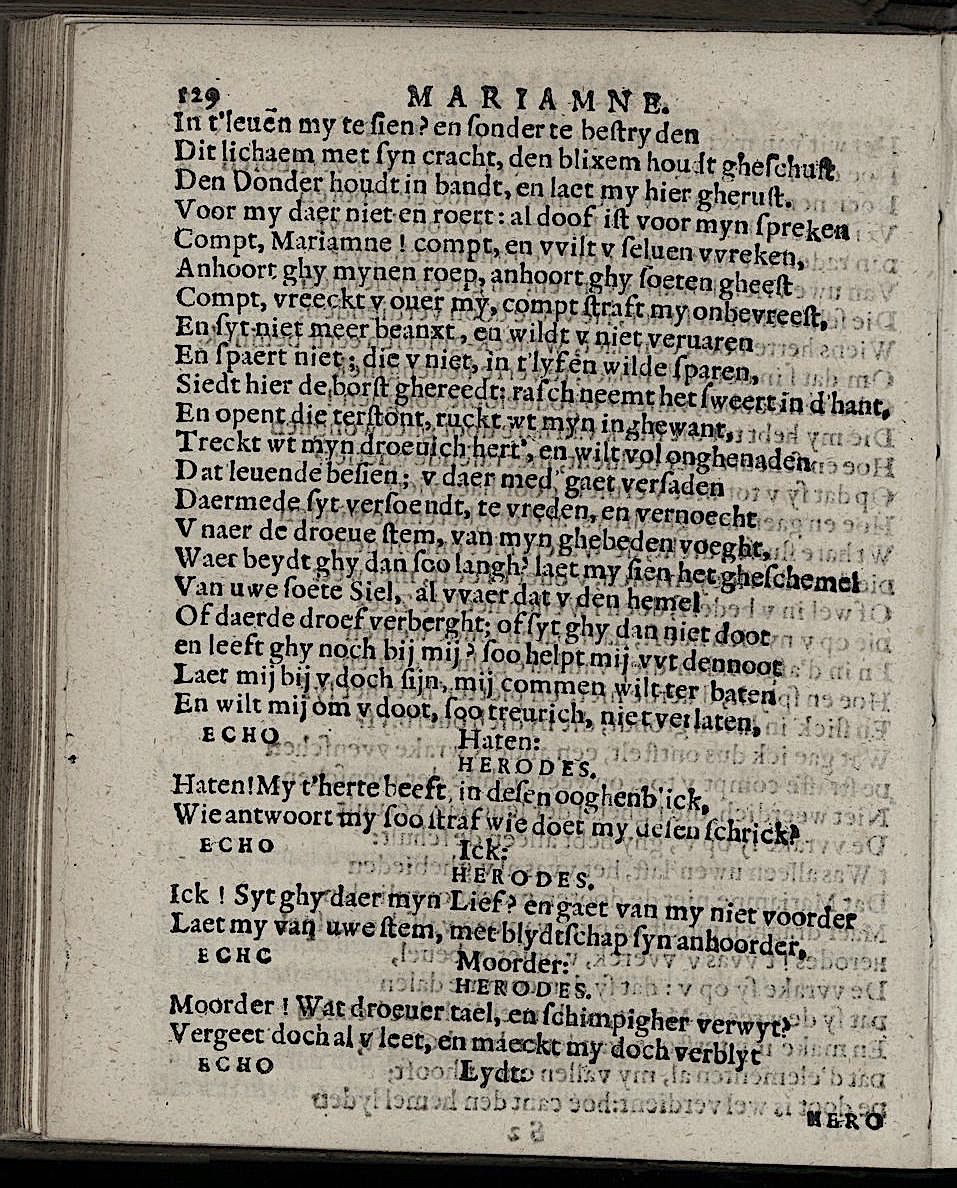 129 MARIAMNE.
In t'leuēn my te ſien? en ſonder te beſtryden
Dit lichaem met ſyn cracht, den blixem houdt gheſchuſt
Den Donder houdt in bandt, en laet my hier gheruſt.
Voor my daer niet en roert: al doof iſt voor myn ſpreken
Compt, Mariamne! compt, en vvilt v ſeluen vvreken,
Anhoort ghy mynen roep, anhoort ghy ſoeten gheeſt
Compt, vreeckt v ouer my, compt ſtraft my onbevreeſt,
En ſyt niet meer beanxt, en wildt v niet veruaren
En ſpaert niet; die v niet, in t'lyfen wilde ſparen,
Siedt hier de borſt ghereedt: raſch neemt het ſweert in d'hant,
En opent die terſtont, ruckt wt myn inghewant,
Treckt wt myn droeuich hert', en wilt vol onghenaden
Dat leuende beſien; v daer med' gaet verſaden
Daermede ſyt verſoendt, te vreden, en vernoecht
V naer de droeue ſtem, van myn ghebeden voeght,
Waer beydt ghy dan ſoo langh? laet my ſien het gheſchemel
Van uwe ſoete Siel, al vvaer dat v den hemel
Of daerde droef verberght; of ſyt ghy dan niet doot
en leeft ghy noch bij mij? ſoo helpt mij vvt dennoot
Laet mij bij v doch ſijn, mij commen wilt ter baten
En wilt mij om v doot, ſoo treurich, niet verlaten,
ECHO Haten:
HERODES.
Haten! My t'herte beeft, in deſen ooghenblick,
Wie antwoort my ſoo ſtraf wie doet my deſen ſchrick?
ECHO Ick:
HERODES.
Ick! Syt ghy daer myn Lief? en gaet van my niet voorder
Laet my van uwe ſtem, met blydtſchap ſyn anhoorder,
ECHC Moorder:
HERODES.
Moorder! Wat droeuer tael, en ſchimpigher verwyt?
Vergeet doch al v leet, en maeckt my doch verblyt
ECHO Lydt:
HERO